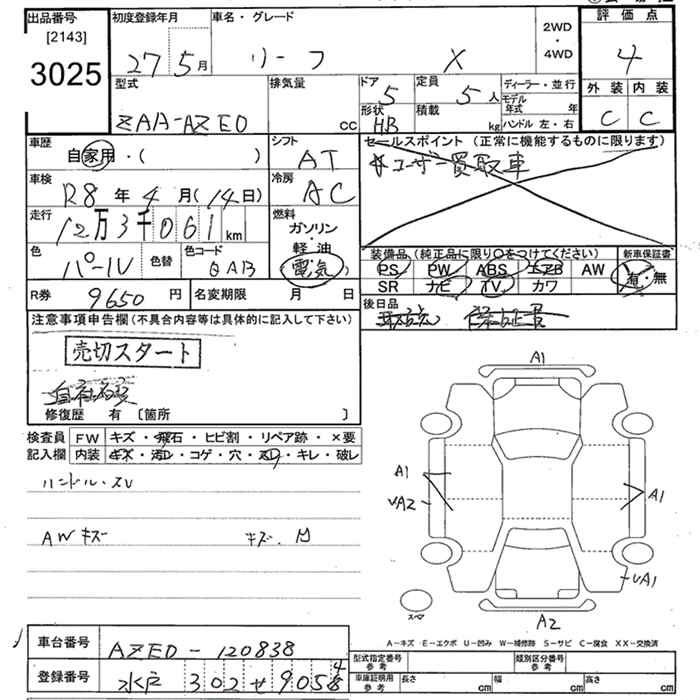 出品番号 初度登録年月 車名・グレード 2WD・4WD 評価点
[2143]
3025 27 5月 リーフ X 4
型式 排気量 ドア 定員 ディーラー・並行 外装 内装
5 5人 モデル年式 年
ZAA-AZE0 cc 形状 積載 ハンドル 左・右 C C
HB kg
車歴 シフト セールスポイント (正常に機能するものに限ります)
自家用・( ) AT ユーザー買取車
車検 冷房
R8年4月(14日) AC
走行 燃料
12万3千061km ガソリン
軽油
色 色替 色コード (電気) 装備品 (純正品に限り○をつけてください) 新車保証書
パール QAB PS PW ABS エアB AW 有・無
SR ナビ TV カワ
R券 9650円 名変期限 月 日 後日品
注意事項申告欄(不具合内容等は具体的に記入して下さい)
売切スタート
修復歴 有 〔箇所 〕
検査員 FW キズ・飛石・ヒビ割・リペア跡・×要
記入欄 内装 キズ・汚レ・コゲ・穴・スレ・キレ・破レ
ハンドル・スレ
AWキズ
A1
A1
A1
A2
A-キズ E-エクボ U-凹み W-補修跡 S-サビ C-腐食 XX-交換済
車台番号 AZE0-120838 型式指定番号 参考 類別区分番号 参考
登録番号 水戸 302 せ 車庫証明用 参考 長さ cm 幅 cm 高さ cm